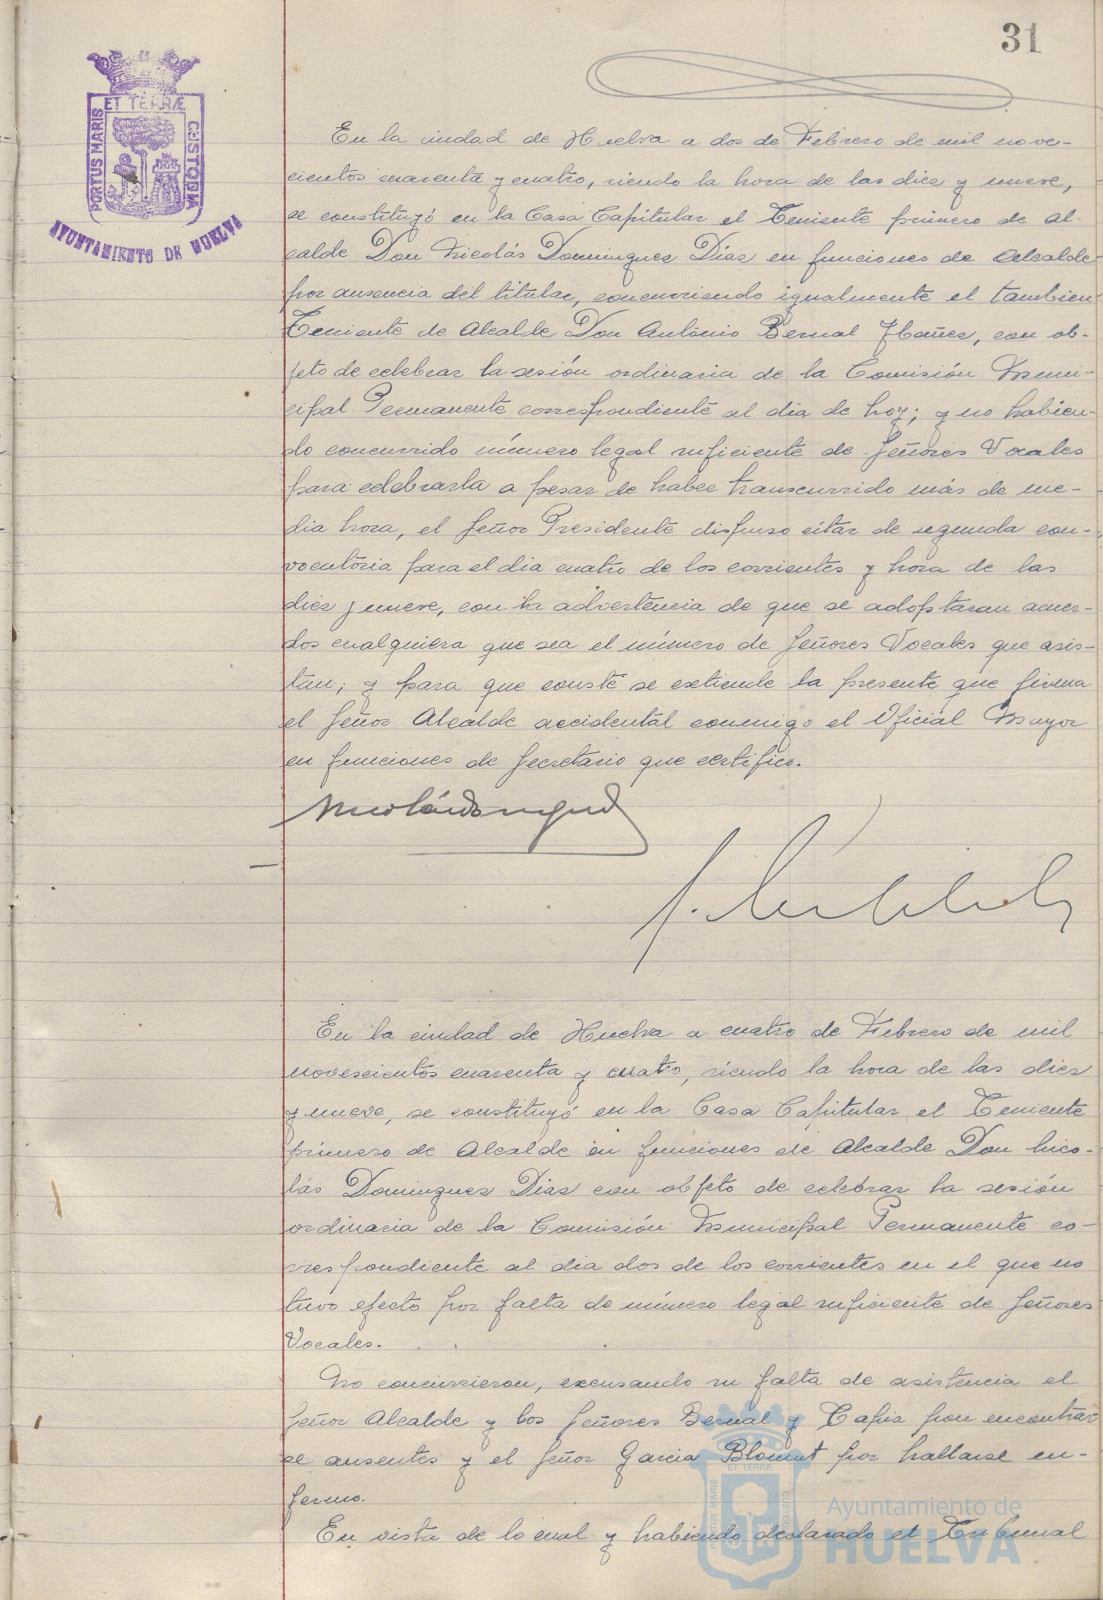 31
ET TERRÆ
PORTUS MARIS
CUSTODIA
AYUNTAMIENTO DE HUELVA
En la ciudad de Huelva a dos de Febrero de mil nove-
cientos cuarenta y cuatro, siendo la hora de las diez y nueve,
se constituyó en la Casa Capitular el Teniente primero de Al-
calde Don Nicolás Dominguez Diaz en funciones de Alcalde
por ausencia del titular, concurriendo igualmente el tambien
Teniente de Alcalde Don António Bernal Ibañez, con ob-
jeto de celebrar la sesión ordinaria de la Comisión Muni-
cipal Permanente correspondiente al dia de hoy; y no habien-
do concurrido número legal suficiente de Señores Vocales
para celebrarla a pesar de haber transcurrido más de me-
dia hora, el Señor Presidente dispuso citar de segunda con-
vocatória para el dia cuatro de los corrientes y hora de las
diez y nueve, con la advertencia de que se adoptaran acuer-
dos cualquiera que sea el número de Señores Vocales que asis-
tan; y para que conste se extiende la presente que firma
el Señor Alcalde accidental conmigo el Oficial Mayor
en funciones de Secretario que certifico.
En la ciudad de Huelva a cuatro de Febrero de mil
novescientos cuarenta y cuatro, siendo la hora de las diez
y nueve, se constituyó en la Casa Capitular el Teniente
primero de Alcalde en funciones de Alcalde Don Nico-
lás Dominguez Diaz con objeto de celebrar la sesión
ordinaria de la Comisión Municipal Permanente co-
rrespondiente al dia dos de los corrientes en el que no
tuvo efecto por falta de número legal suficiente de Señores
Vocales.
No concurrieron, excusando su falta de asistencia el
Señor Alcalde y los Señores Bernal y Tapia por encontrar
se ausentes y el Señor Garcia Blomut por hallarse en-
fermo.
En vista de lo cual y habiendo declarado el Tribunal
ET TERRA
Ayuntamiento de
HUELVA